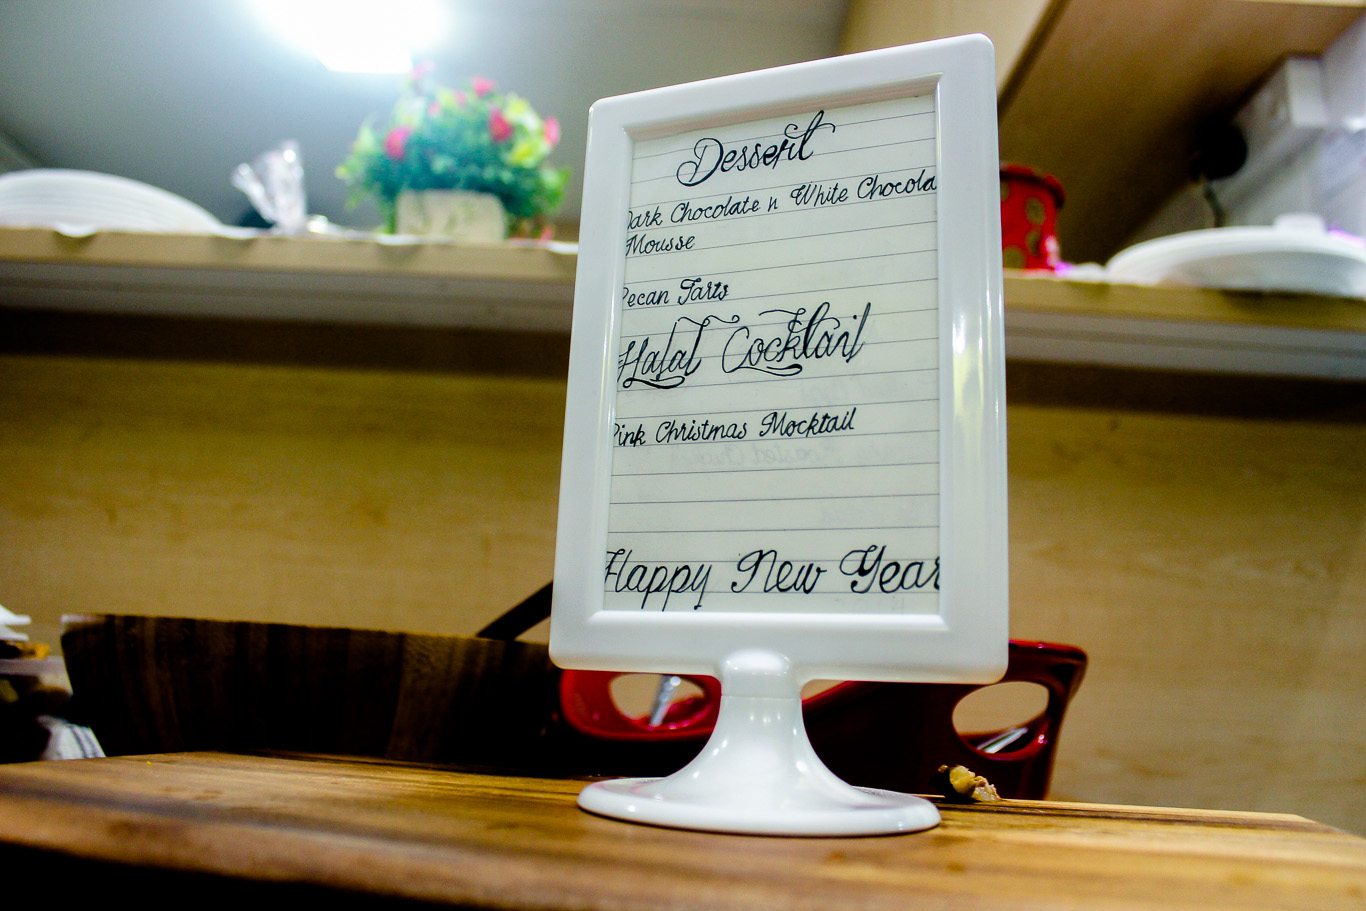 Dessert
Dark Chocolate n White Chocola
Mousse
Pecan Tarts
Halal Cocktail
Pink Christmas Mocktail
Happy New Year